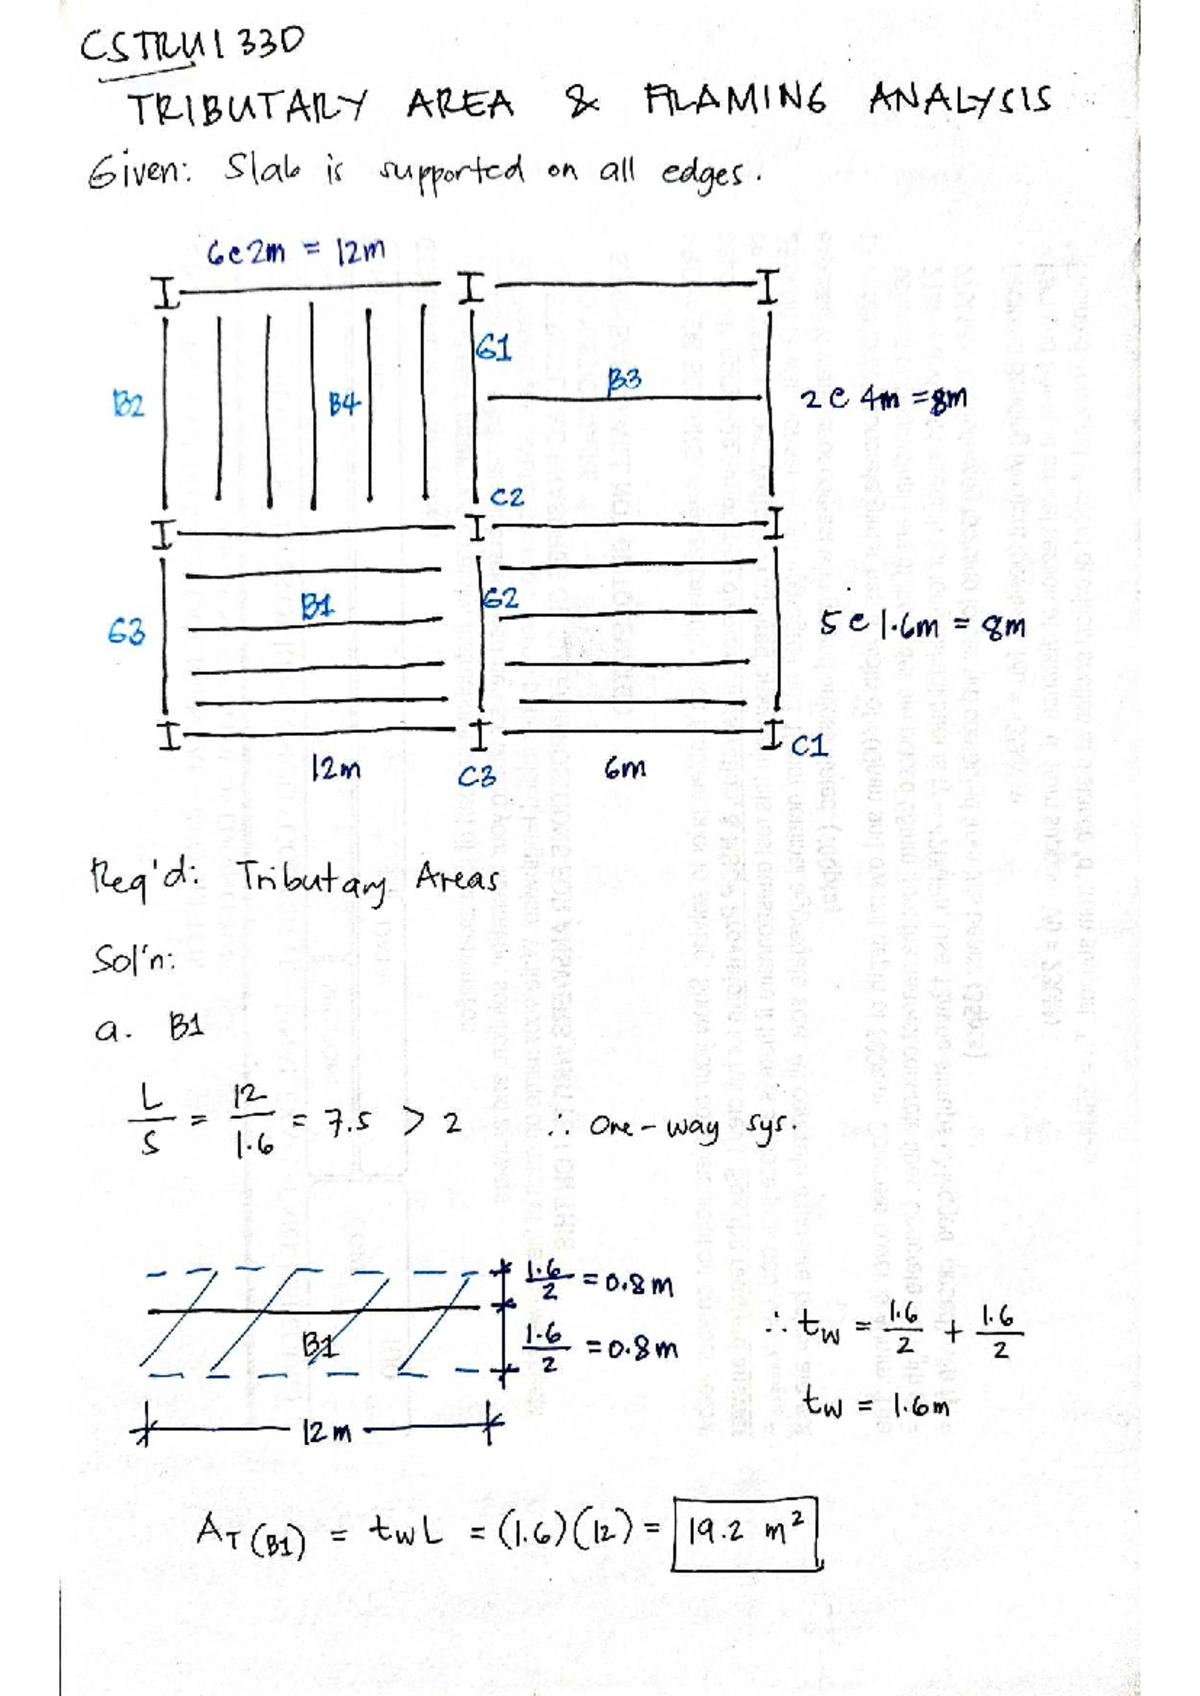 CSTRU1330
TRIBUTARY AREA & FRAMING ANALYSIS
Given: Slab is supported on all edges.
6@2m = 12m
G1
B3
B2
B4
2 @ 4m = 8m
C2
B1
G2
G3
5 @ 1.6m = 8m
C1
12m
C3
6m
Req'd: Tributary Areas
Sol'n:
a. B1
L/S = 12/1.6 = 7.5 > 2 ∴ One-way sys.
1.6/2 = 0.8m
B1
1.6/2 = 0.8m
∴ tw = 1.6/2 + 1.6/2
tw = 1.6m
12m
AT(B1) = twL = (1.6)(12) = 19.2 m²